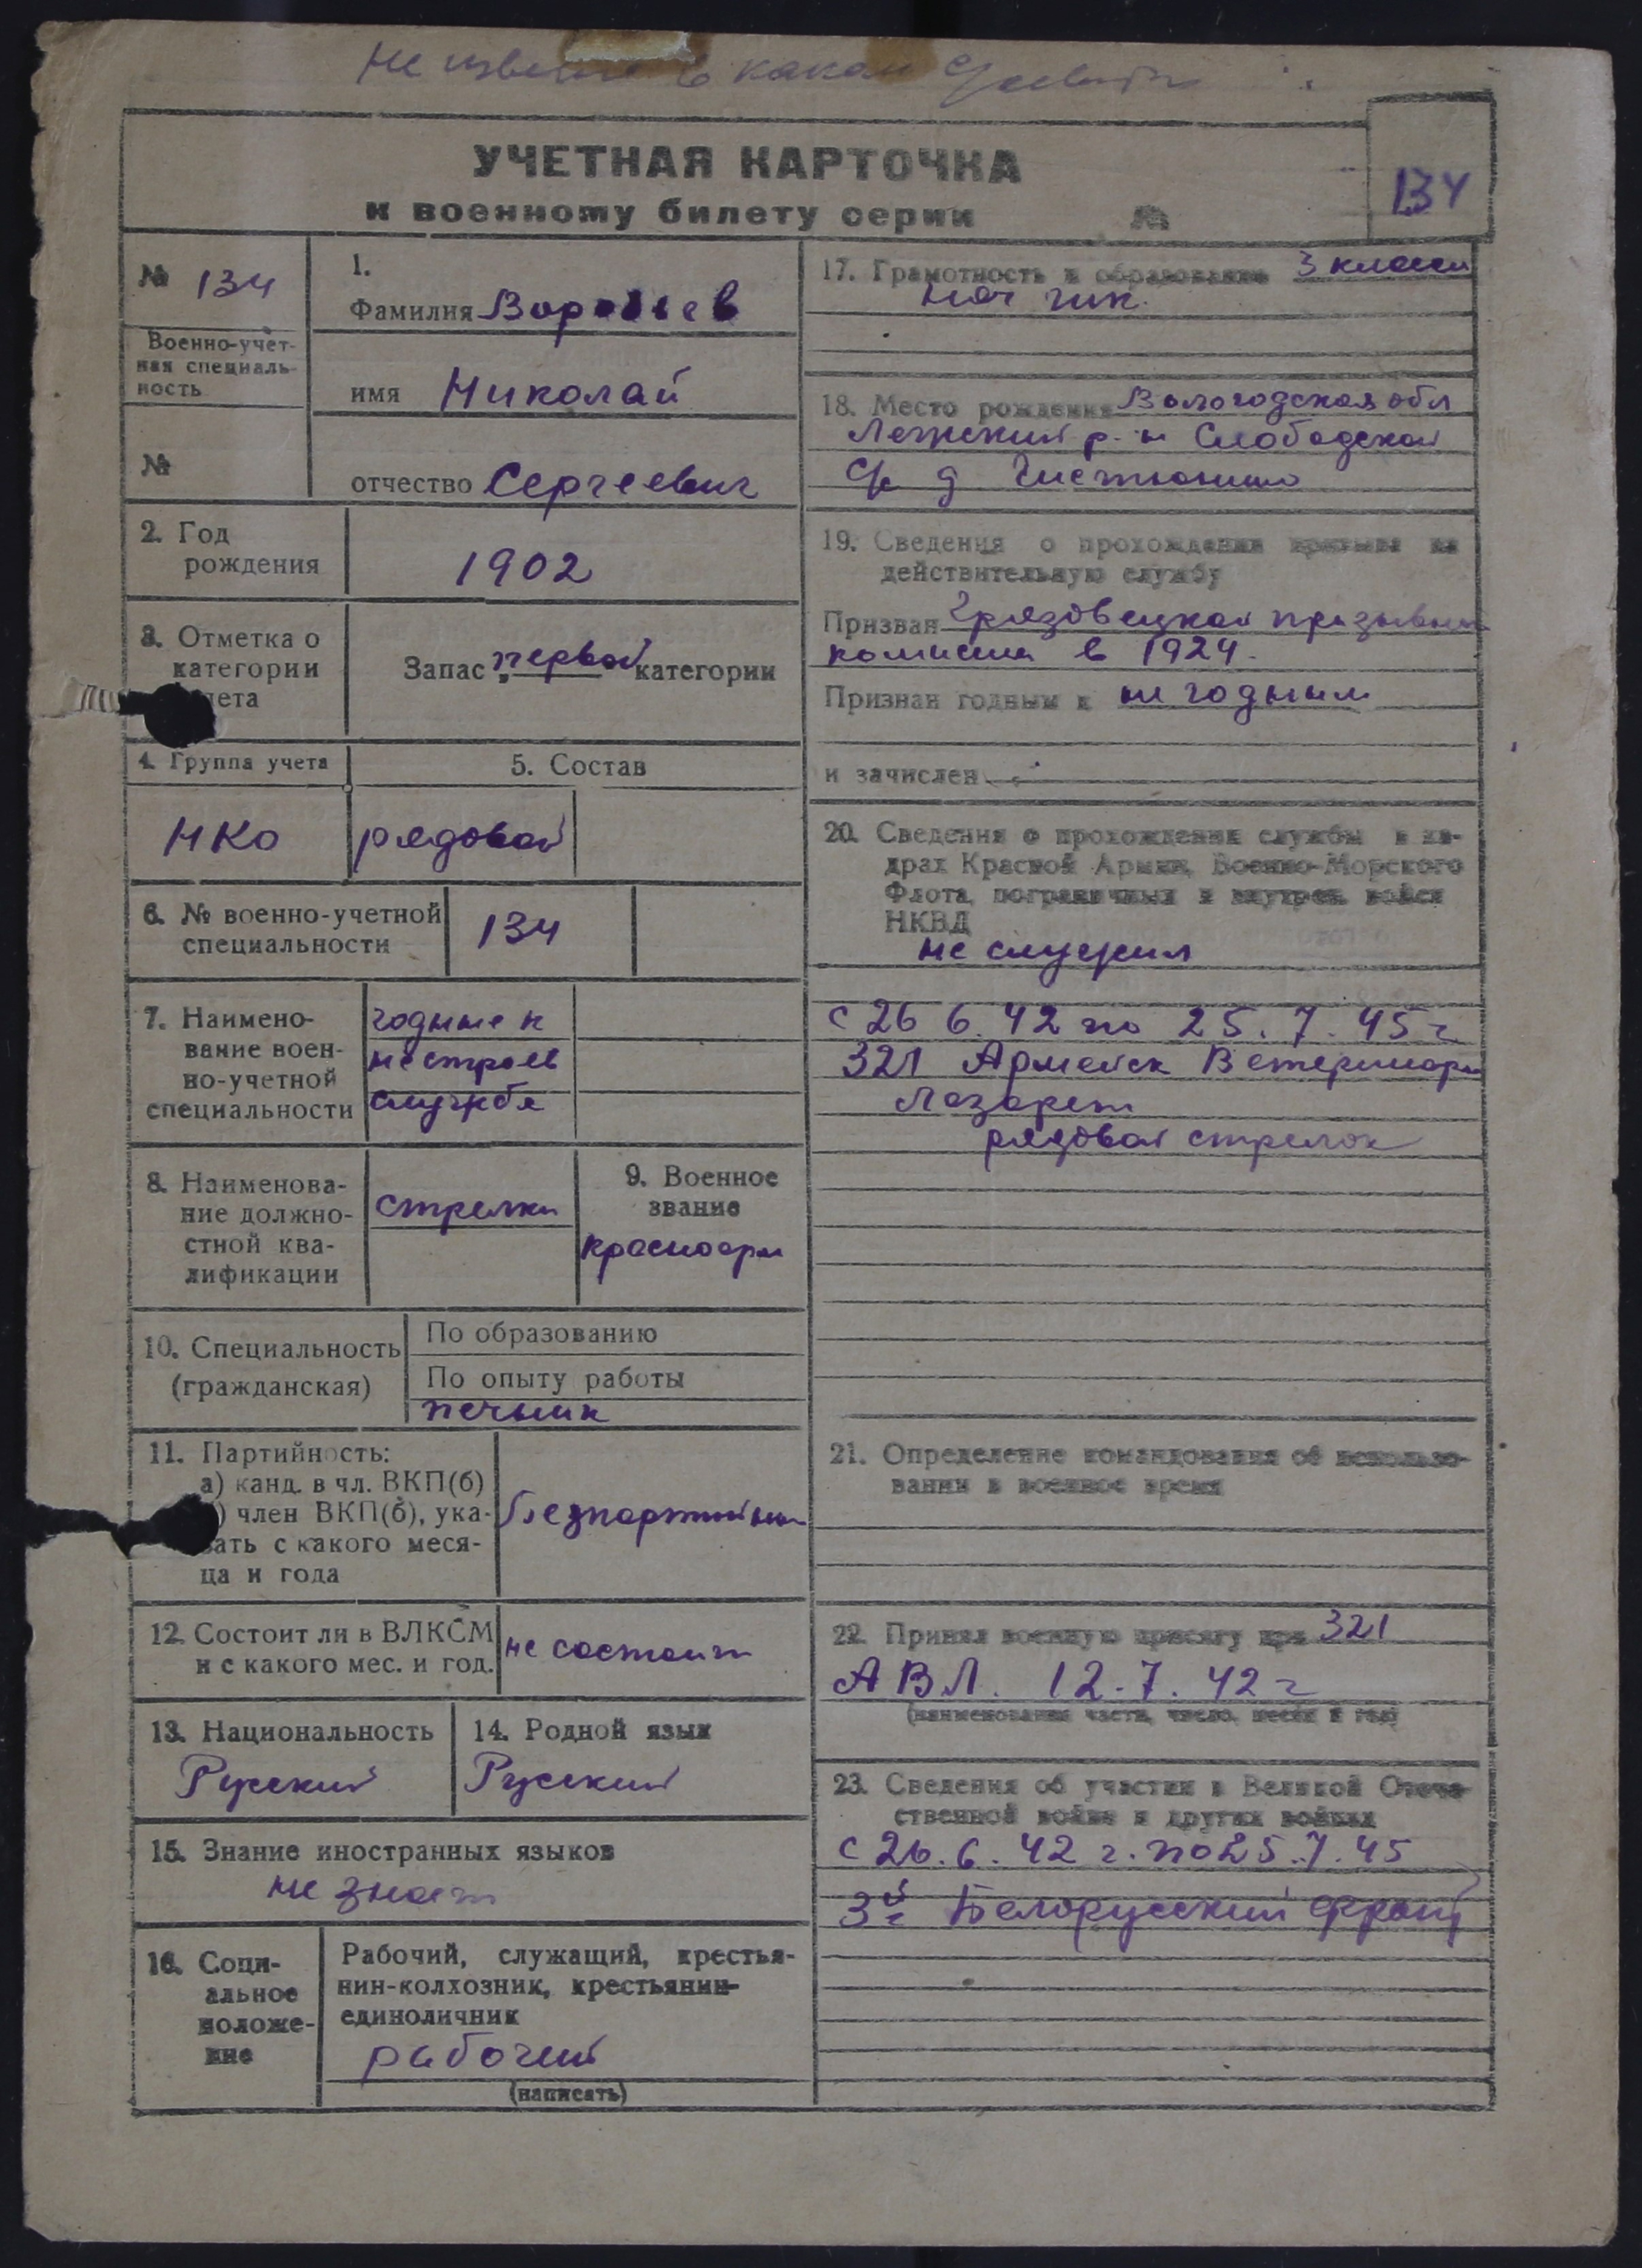 Не в каком
УЧЕТНАЯ КАРТОЧКА
к военному билету серии №
134
№ 134
Военно-учет-
ная специаль-
ность
№
1.
Фамилия Воробьев
имя Николай
отчество Сергеевич
2. Год
рождения
1902
3. Отметка о
категории
лета
Запас первой категории
4. Группа учета
5. Состав
НКО
рядовой
6. № военно-учетной
специальности
134
7. Наимено-
вание воен-
но-учетной
специальности
годные к
нестроев
службе
8. Наименова-
ние должно-
стной ква-
лификации
стрелки
9. Военное
звание
красноарм
10. Специальность
(гражданская)
По образованию
По опыту работы
печник
11. Партийность:
а) канд. в чл. ВКП(б)
) член ВКП(б), ука-
зать с какого меся-
ца и года
безпартийный
12. Состоит ли в ВЛКСМ
и с какого мес. и год.
не состоит
13. Национальность
Русский
14. Родной язык
Русский
15. Знание иностранных языков
не знает
16. Соци-
альное
положе-
ние
Рабочий, служащий, крестья-
нин-колхозник, крестьянин-
единоличник
рабочий
(написать)
17. Грамотность и образование 3 класса
нач
18. Место рождения Вологодская обл
Лежский р-н Слободской
д
19. Сведения о прохождении призыва на
действительную службу
Призван Грязовецкой призывной
комиссии в 1924.
Признан годным к не годным
и зачислен
20. Сведения о прохождении службы в ка-
драх Красной Армии, Военно-Морского
Флота, пограничных и внутрен. войск
НКВД
не служил
с 26 6. 42 по 25. 7. 45 г
321 Армейск Ветеринарн
Лазарет
рядовой стрелок
21. Определение командования об использо-
вании в военное время
22. Принял военную присягу при 321
АВЛ. 12. 7. 42 г
(наименование части, число, месяц и год)
23. Сведения об участии в Великой Отече-
ственной войне и других войнах
с 26. 6. 42 г. по 25. 7. 45
3й Белорусский фронт